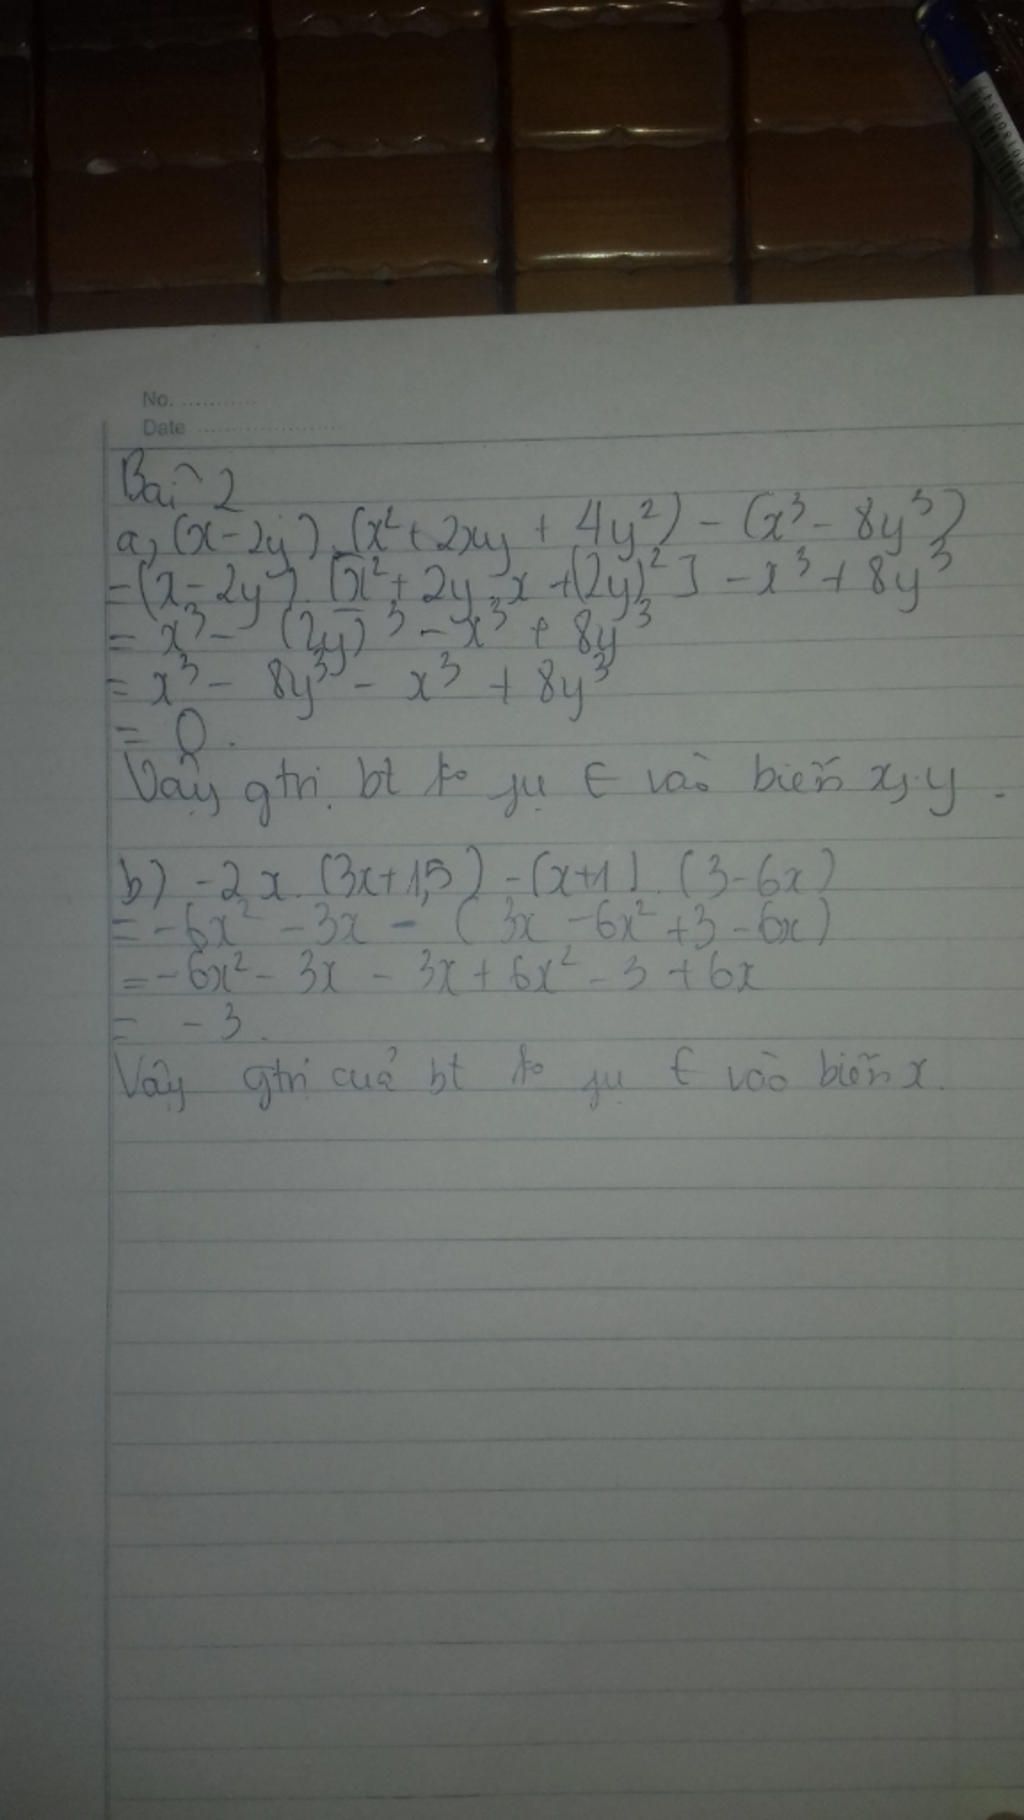 No. ............
Date .....................
Bài 2
a, (x-2y). (x²+2xy + 4y²) - (x³- 8y³)
=(x-2y). [x²+ 2y.x +(2y)²] -x³+ 8y³
= x³- (2y)³ -x³ + 8y³
= x³- 8y³- x³ + 8y³
= 0.
Vậy gtrị bt ko fụ E vào biến x, y.
b) -2x. (3x+1,5) -(x+1). (3-6x)
= -6x² -3x - (3x -6x² +3 -6x)
= -6x²- 3x - 3x + 6x² -3 +6x
= -3.
Vậy gtrị của bt ko fụ E vào biến x.